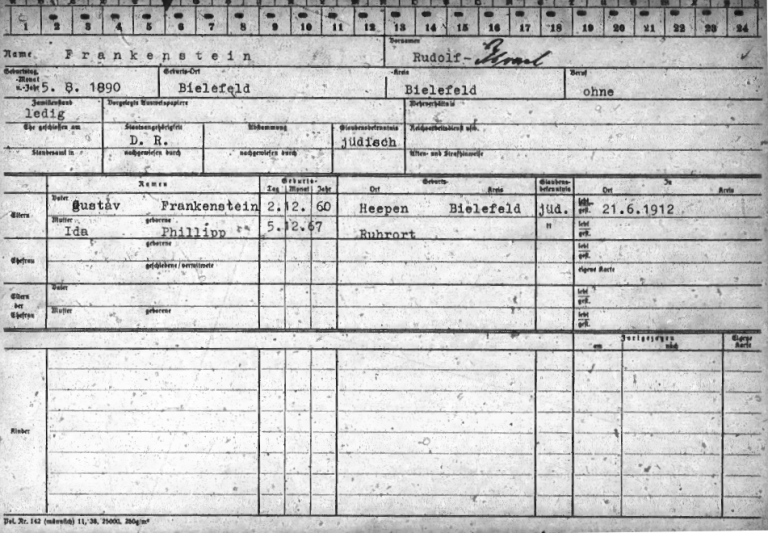 1 2 3 4 5 6 7 8 9 10 11 12 13 14 15 16 17 18 19 20 21 22 23 24
Name Frankenstein
Vornamen Rudolf-Israel
Geburtstag, -Monat u.-Jahr 5. 8. 1890
Geburts-Ort Bielefeld
-Kreis Bielefeld
Beruf ohne
Familienstand ledig
Vorgelegte Ausweispapiere
Wehrverhältnis
Ehe geschlossen am
Staatsangehörigkeit D. R.
Abstammung
Glaubensbekenntnis jüdisch
Reichsarbeitsdienst usw.
Standesamt in
nachgewiesen durch
nachgewiesen durch
Akten- und Strafhinweise
Namen
Geburts-
Tag Monat Jahr
Geburts-
Ort Kreis
Glaubens-
bekenntnis
In
Ort Kreis
Eltern
Vater Gustav Frankenstein 2.12. 60 Heepen Bielefeld jüd. lebt gest. 21.6.1912
Mutter Ida geborene Phillipp 5.12.67 Ruhrort " lebt gest.
Ehefrau
geborene
lebt gest.
geschiedene/verwitwete
eigene Karte
Eltern der Ehefrau
Vater
lebt gest.
Mutter geborene
lebt gest.
Fortgezogen
am nach
Eigene Karte
Kinder
Pol. Nr. 142 (männlich) 11. 38. 25000. 250g/m²